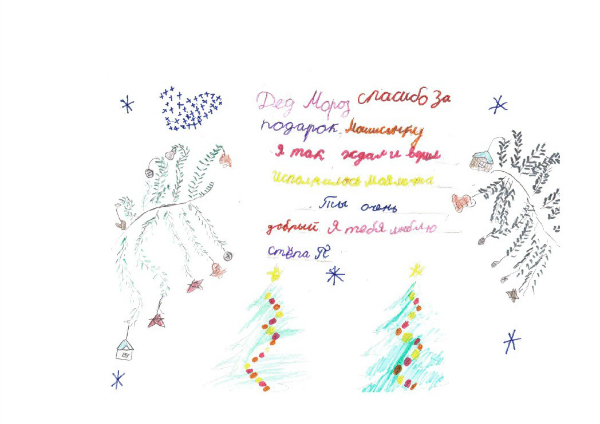 Дед Мороз спасибо за
подарок. Машинку
Я так ждал и верил
Исполнилось моя мечта
Ты очень
добрый Я тебя люблю
Стёпа П